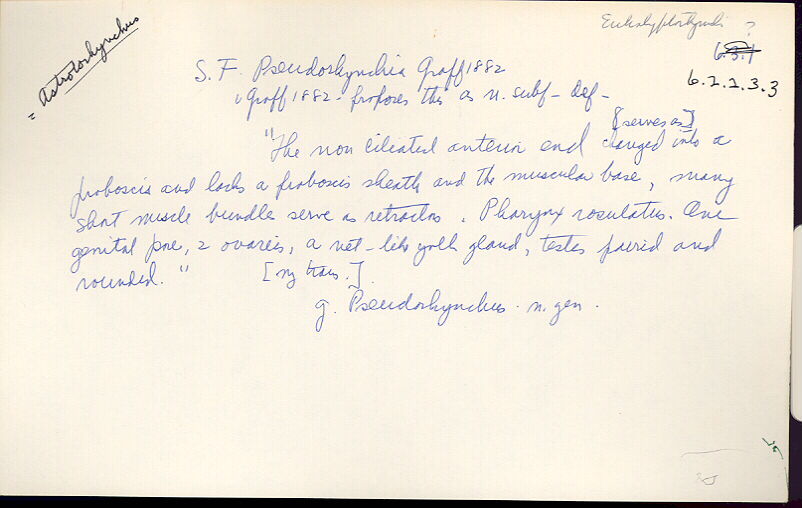 = Astrotorhynchus
Eukalyptorhynchi ?
6.3.1
6.2.2.3.3
S.F. Pseudorhynchia Graff 1882
Graff 1882 - proposes this as n. subf - def -
[serves as]
"The non ciliated anterior end changed into a
proboscis and lacks a proboscis sheath and the muscular base, many
short muscle bundle serve as retractors. Pharynx rosulatus. One
genital pore, 2 ovaries, a net-like yolk gland, testes paired and
rounded." [my trans.].
g. Pseudorhynchus n. gen.